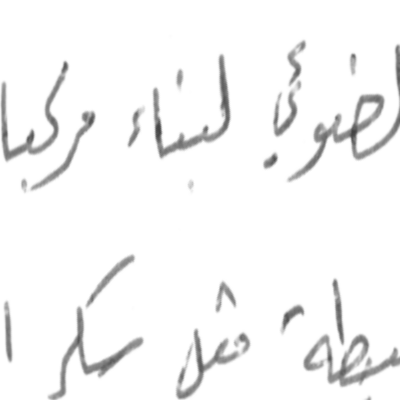 لضوئي لبناء مركبا
سيطة مثل سكر ا